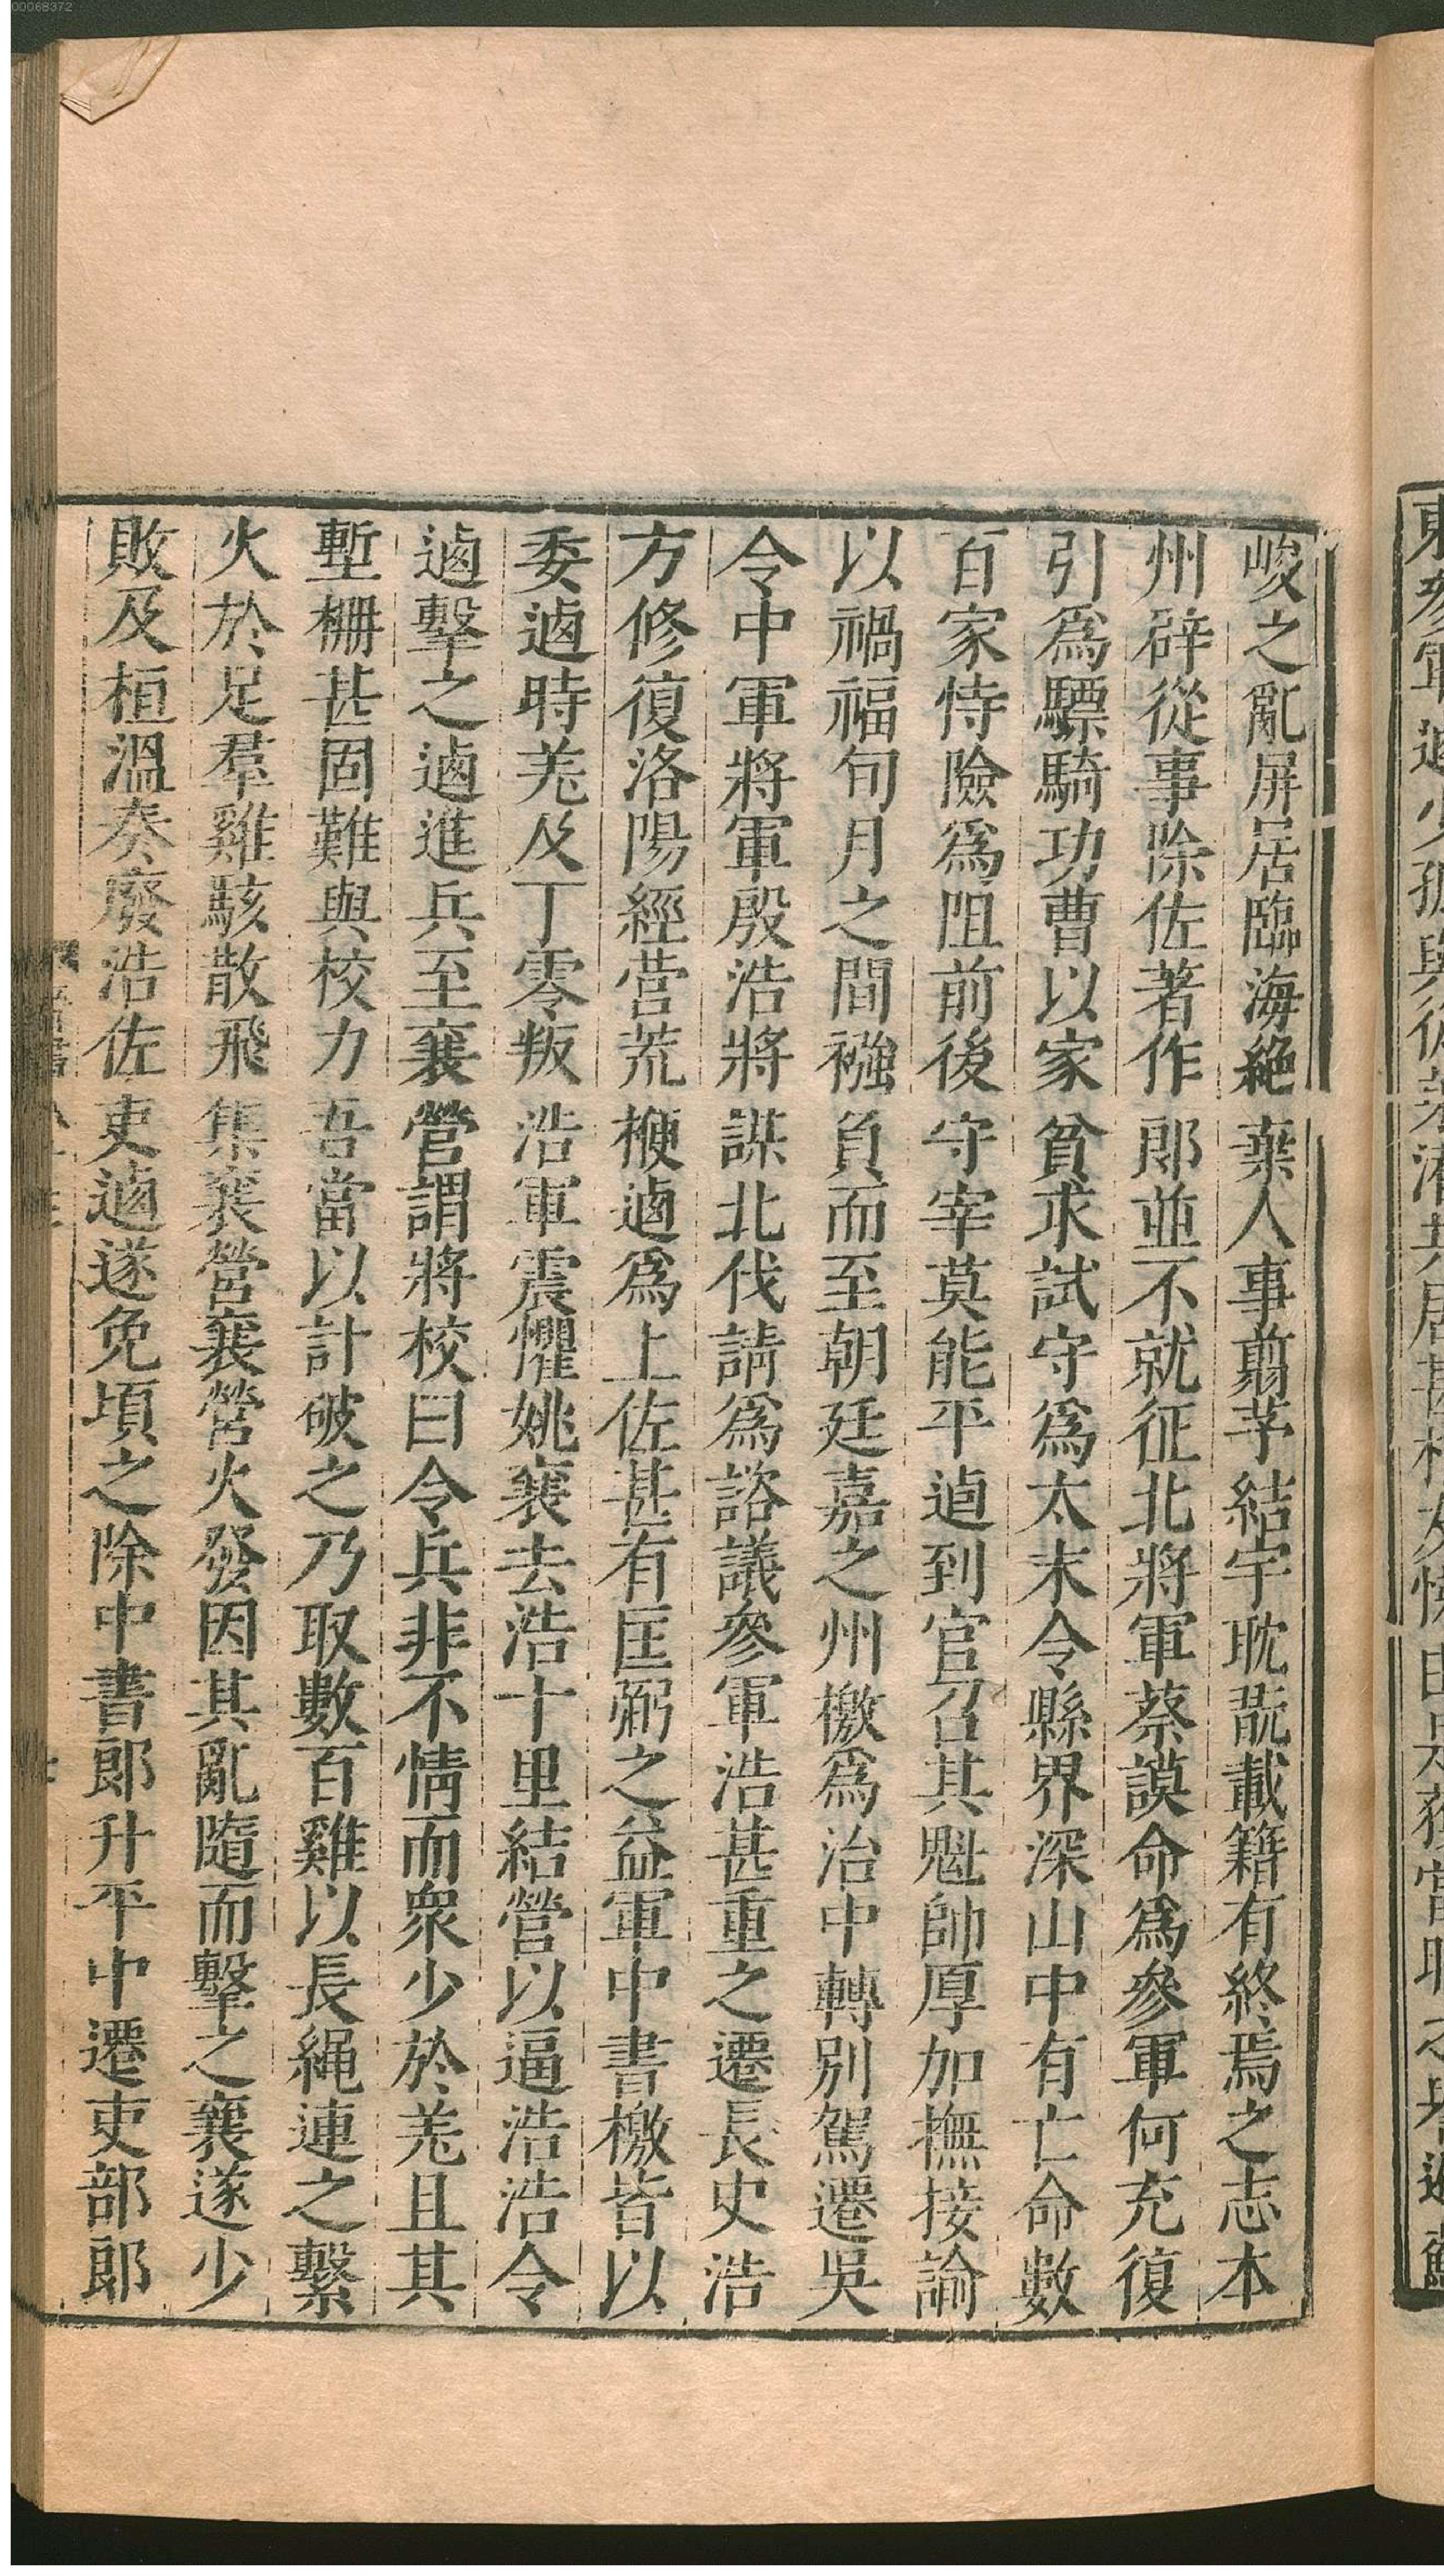 00068372
峻之亂屏居臨海絶棄人事翦茅結宇耽翫載籍有終焉之志本
州辟從事除佐著作郎並不就征北將軍蔡謨命爲參軍何充復
引爲驃騎功曹以家貧求試守爲太末令縣界深山中有亡命數
百家恃險爲阻前後守宰莫能平逌到官召其魁帥厚加撫接諭
以禍福旬月之間襁負而至朝廷嘉之州檄爲治中轉別駕遷吳
令中軍將軍殷浩將謀北伐請爲諮議參軍浩甚重之遷長史浩
方修復洛陽經營荒梗逌爲上佐甚有匡弼之益軍中書檄皆以
委逌時羌及丁零叛浩軍震懼姚襄去浩十里結營以逼浩浩令
逌擊之逌進兵至襄營謂將校曰令兵非不情而衆少於羌且其
塹柵甚固難與校力吾當以計破之乃取數百雞以長繩連之繫
火於足羣雞駭散飛集襄營襄營火發因其亂隨而擊之襄遂少
敗及桓溫奏廢浩佐吏逌遂免頃之除中書郎升平中遷吏部郎